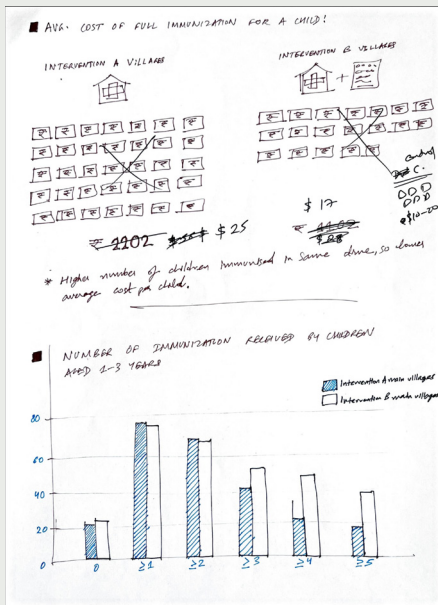 AVG. COST OF FULL IMMUNIZATION FOR A CHILD!
INTERVENTION A VILLAGES
INTERVENTION B VILLAGES
+
₹ ₹ ₹ ₹ ₹ ₹ ₹
₹ ₹ ₹ ₹ ₹ ₹ ₹
₹ ₹ ₹ ₹ ₹ ₹ ₹
₹ ₹ ₹ ₹ ₹ ₹ ₹
₹ ₹ ₹ ₹ ₹ ₹ ₹
₹ ₹ ₹ ₹ ₹ ₹ ₹
₹ ₹ ₹ ₹ ₹ ₹ ₹
₹ ₹ ₹ ₹ ₹
control
C.
₹ 2202 $ 25
$ 17
* Higher number of children immunised in same time, so lower
average cost per child.
NUMBER OF IMMUNIZATION RECEIVED BY CHILDREN
AGED 1-3 YEARS
Intervention A main villages
Intervention B main villages
80
60
40
20
0
0 ≥1 ≥2 ≥3 ≥4 ≥5